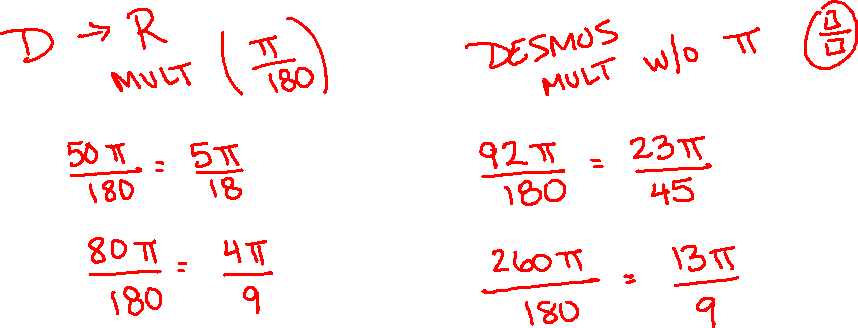 D → R
MULT (π/180)
50π/180 = 5π/18
80π/180 = 4π/9
DESMOS
MULT w/o π
92π/180 = 23π/45
260π/180 = 13π/9